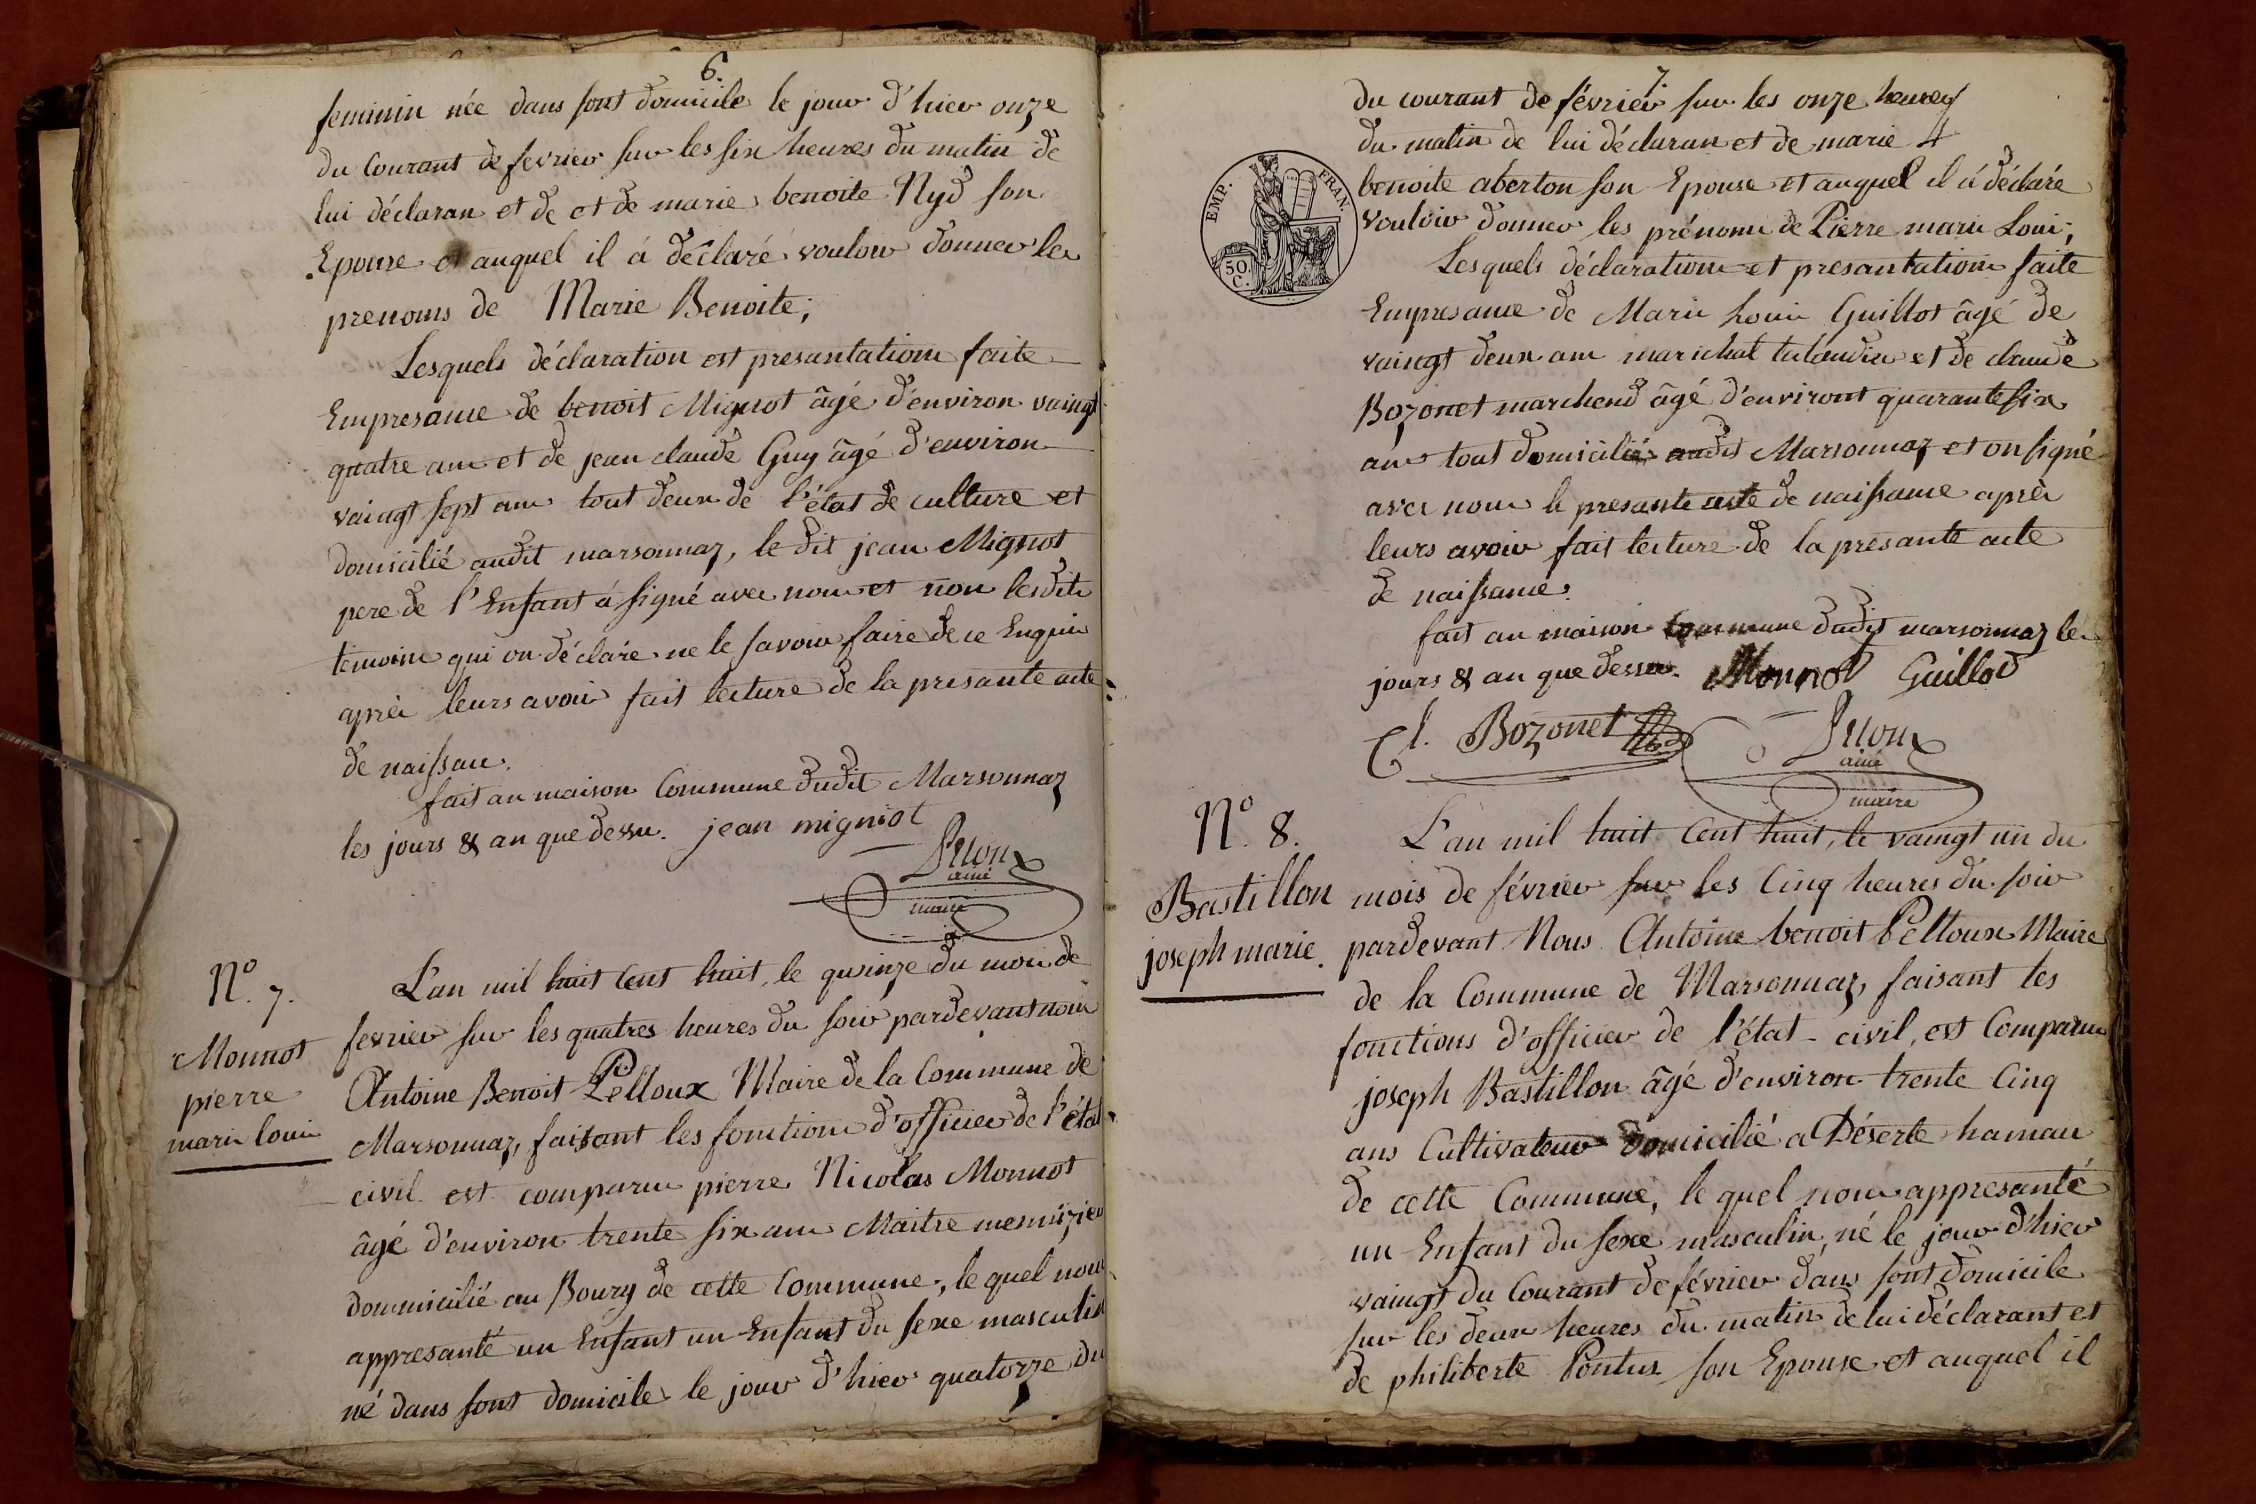 6.
feminin née dans sont domicile le jour d'hier onze
du Courant de fevrier sur les six heures du matin de
lui déclaran et de et de marie benoite Nyd son
Epouse et auquel il á déclaré vouloir donner les
prenoms de Marie Benoite;
Lesquels déclaration est presantation faite
Empresance de benoit Mignot âgé d'environ vaingt
quatre ans et de jean claude Guy âgé d'environ
vaingt sept ans tout deux de l'état de culture et
domicilié audit marsonnaz, le dit jean Mignot
pere de l'Enfant á signé avec nous et non lesdits
temoins qui on déclaré ne le savoir faire de ce Enquis
après leurs avoir fait lecture de la presante acte
de naissance.
fait au maison Commune dudit Marsonnaz
les jours & an que dessu. jean mignot
Pelloux
ainé
maire
N.° 7.
Monnot
pierre
marie louis
L'an mil huit Cent huit, le quinze du mois de
fevrier sur les quatres heures du soir pardevant nous
Antoine Benoit Pelloux Maire de la Commune de
Marsonnaz, faisant les fonctions d'officier de l'état
civil est comparu pierre Nicolas Monnot
âgé d'environ trente six ans Maitre menuizier
dommicilié au Bourg de cette Commune, le quel nous
appresanté un Enfant un Enfant du sexe masculin
né dans sont domicile le jour d'hier quatorze du
7.
du courant de février sur les onze heures
du matin de lui déclaran et de marie
benoite aberton son Epouse et auquel il á déclaré
vouloir donner les prénoms de Pierre marie Louis;
EMP. FRAN.
50.
C.
Lesquels déclarations et presantations faite
Empresance de Marie Louis Guillot âgé de
vaingt deux ans marichal talandier et de claude
Bozonet marchend âgé d'environt quarante six
ans tout domicilié audit Marsonnaz et on signé
avec nous le presante acte de naissance après
leurs avoir fait lecture de la presante acte
de naissance.
fait au maison Commune dudit marsonnaz les
jours & an que dessu. Monnot Guillod
Cl. Bozonet Pelloux
ainé
maire
N.° 8.
Bastillon
joseph marie.
L'an mil huit Cent huit, le vaingt un du
mois de février sur les Cinq heures du soir
pardevant Nous Antoine benoit Pelloux Maire
de la Commune de Marsonnaz, faisant les
fonctions d'officier de l'état-civil, est Comparu
joseph Bastillon âgé d'environ trente Cinq
ans Cultivateur domicilié a Déserte hamau
de cette Commune, le quel nous appresanté
un Enfant du sexe masculin, né le jour d'hier
vaingt du Courant de février dans sont domicile
sur les deux heures du matin de lui déclarant et
de philiberte Pontus son Epouse et auquel il